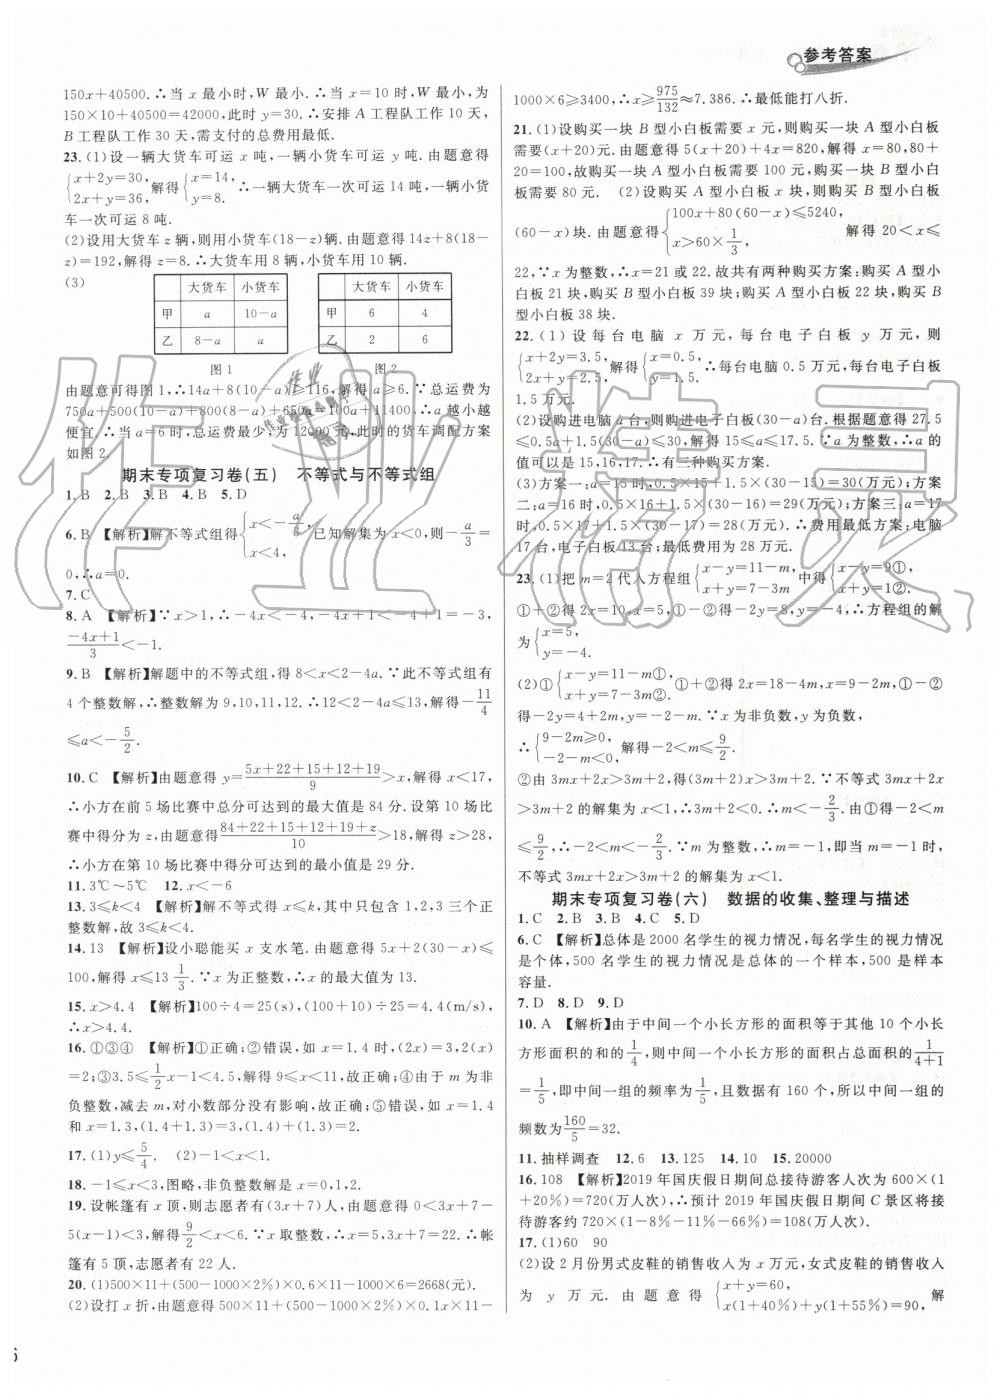 参考答案
150x+40500.∴当 x 最小时,W 最小.∴当 x=10 时,W 最小为
150×10+40500=42000,此时 y=30.∴安排 A 工程队工作 10 天,
B 工程队工作 30 天,需支付的总费用最低.
23.(1)设一辆大货车可运 x 吨,一辆小货车可运 y 吨.由题意得
{x+2y=30, 2x+y=36, 解得{x=14, y=8. ∴一辆大货车一次可运 14 吨,一辆小货
车一次可运 8 吨.
(2)设用大货车 z 辆,则用小货车(18-z)辆.由题意得 14z+8(18-
z)=192,解得 z=8.∴大货车用 8 辆,小货车用 10 辆.
(3)
大货车 小货车
甲 a 10-a
乙 8-a a
图 1
大货车 小货车
甲 6 4
乙 2 6
图 2
由题意可得图 1,∴14a+8(10-a)≥116,解得 a≥6.∵总运费为
750a+500(10-a)+800(8-a)+650a=100a+11400,∴a 越小越
便宜.∴当 a=6 时,总运费最少,为 12000 元,此时的货车调配方案
如图 2.
期末专项复习卷(五) 不等式与不等式组
1.B 2.B 3.B 4.B 5.D
6.B 【解析】解不等式组得{x<-a/3, x<4, 已知解集为 x<0,则-a/3=
0,∴a=0.
7.C
8.A 【解析】∵x>1,∴-4x<-4,∴-4x+1<-4+1=-3,
∴(-4x+1)/3<-1.
9.B 【解析】解题中的不等式组,得 8<x<2-4a.∵此不等式组有
4 个整数解,∴整数解为 9,10,11,12.∴12<2-4a≤13,解得-11/4
≤a<-5/2.
10.C 【解析】由题意得 y=(5x+22+15+12+19)/9>x,解得 x<17,
∴小方在前 5 场比赛中总分可达到的最大值是 84 分.设第 10 场比
赛中得分为 z,由题意得(84+22+15+12+19+z)/10>18,解得 z>28,
∴小方在第 10 场比赛中得分可达到的最小值是 29 分.
11.3℃~5℃ 12.x<-6
13.3≤k<4 【解析】解得 x≤k.由于其中只包含 1,2,3 三个正
整数解,故 3≤k<4.
14.13 【解析】设小聪能买 x 支水笔.由题意得 5x+2(30-x)≤
100,解得 x≤13 1/3.∵x 为正整数,∴x 的最大值为 13.
15.x>4.4 【解析】100÷4=25(s),(100+10)÷25=4.4(m/s),
∴x>4.4.
16.①③④ 【解析】①正确;②错误,如 x=1.4 时,(2x)=3,2(x)
=2;③3.5≤1/2x-1<4.5,解得 9≤x<11,故正确;④由于 m 为非
负整数,减去 m,对小数部分没有影响,故正确;⑤错误,如 x=1.4
和 x=1.3,(1.4+1.3)=3,(1.4)+(1.3)=2.
17.(1)y≤5/4. (2)-1<x<1.
18.-1≤x<3,图略,非负整数解是 x=0,1,2.
19.设帐篷有 x 顶,则志愿者有(3x+7)人,由题意得 0<3x+7-
5(x-1)<3,解得9/2<x<6.∵x 取整数,∴x=5,3x+7=22.∴帐
篷有 5 顶,志愿者有 22 人.
20.(1)500×11+(500-1000×2%)×0.6×11-1000×6=2668(元).
(2)设打 x 折,由题意得 500×11+(500-1000×2%)×0.1x×11-
1000×6≥3400,∴x≥975/132≈7.386.∴最低能打八折.
21.(1)设购买一块 B 型小白板需要 x 元,则购买一块 A 型小白板
需要(x+20)元.由题意得 5(x+20)+4x=820,解得 x=80,80+
20=100,故购买一块 A 型小白板需要 100 元,购买一块 B 型小白
板需要 80 元. (2)设购买 A 型小白板 x 块,则购买 B 型小白板
(60-x)块.由题意得{100x+80(60-x)≤5240, x>60×1/3, 解得 20<x≤
22,∵x 为整数,∴x=21 或 22.故共有两种购买方案:购买 A 型小
白板 21 块,购买 B 型小白板 39 块;购买 A 型小白板 22 块,购买 B
型小白板 38 块.
22.(1)设每台电脑 x 万元,每台电子白板 y 万元,则
{x+2y=3.5, 2x+y=2.5, 解得{x=0.5, y=1.5. ∴每台电脑 0.5 万元,每台电子白板
1.5 万元.
(2)设购进电脑 a 台,则购进电子白板(30-a)台.根据题意得 27.5
≤0.5a+1.5(30-a)≤30,解得 15≤a≤17.5.∵a 为整数,∴a 的
值为 15,16,17.∴有三种购买方案.
(3)方案一:a=15 时,0.5×15+1.5×(30-15)=30(万元);方案
二:a=16 时,0.5×16+1.5×(30-16)=29(万元);方案三:a=17
时,0.5×17+1.5×(30-17)=28(万元).∴费用最低方案:电脑
17 台,电子白板 13 台;最低费用为 28 万元.
23.(1)把 m=2 代入方程组{x-y=11-m, x+y=7-3m 中得{x-y=9①, x+y=1②,
①+②得 2x=10,x=5,①-②得-2y=8,y=-4,∴方程组的解
为{x=5, y=-4.
(2)①{x-y=11-m①, x+y=7-3m②. ①+②得 2x=18-4m,x=9-2m,①-②
得-2y=4+2m,y=-2-m.∵x 为非负数,y 为负数,
∴{9-2m≥0, -2-m<0, 解得-2<m≤9/2.
②由 3mx+2x>3m+2,得(3m+2)x>3m+2.∵不等式 3mx+2x
>3m+2 的解集为 x<1,∴3m+2<0.∴m<-2/3.由①得-2<m
≤9/2,∴-2<m<-2/3.∵m 为整数,∴m=-1,即当 m=-1 时,
不等式 3mx+2x>3m+2 的解集为 x<1.
期末专项复习卷(六) 数据的收集、整理与描述
1.C 2.B 3.B 4.C 5.D
6.C 【解析】总体是 2000 名学生的视力情况,每名学生的视力情况
是个体,500 名学生的视力情况是总体的一个样本,500 是样本
容量.
7.D 8.D 9.D
10.A 【解析】由于中间一个小长方形的面积等于其他 10 个小长
方形面积的和的1/4,则中间一个小长方形的面积占总面积的1/(4+1)
=1/5,即中间一组的频率为1/5,且数据有 160 个,所以中间一组的
频数为160/5=32.
11.抽样调查 12.6 13.125 14.10 15.20000
16.108 【解析】2019 年国庆假日期间总接待游客人次为 600×(1
+20%)=720(万人次),∴预计 2019 年国庆假日期间 C 景区将接
待游客约 720×(1-8%-11%-66%)=108(万人次).
17.(1)60 90
(2)设 2 月份男式皮鞋的销售收入为 x 万元,女式皮鞋的销售收入
为 y 万元.由题意得{x+y=60, x(1+40%)+y(1+55%)=90, 解
作业精灵